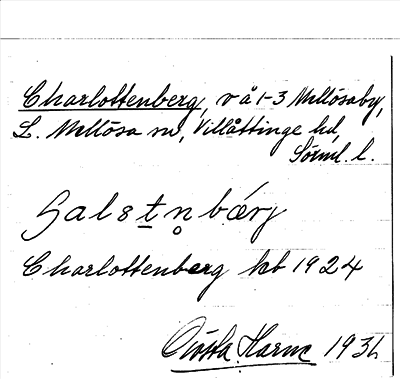 Charlottenberg, v å 1-3 Mellösaby,
L. Mellösa sn, Villåttinge hd,
Sörml. l.
Salstn̥bǽrj
Charlottenberg kb 1924
Gösta Harne 1936